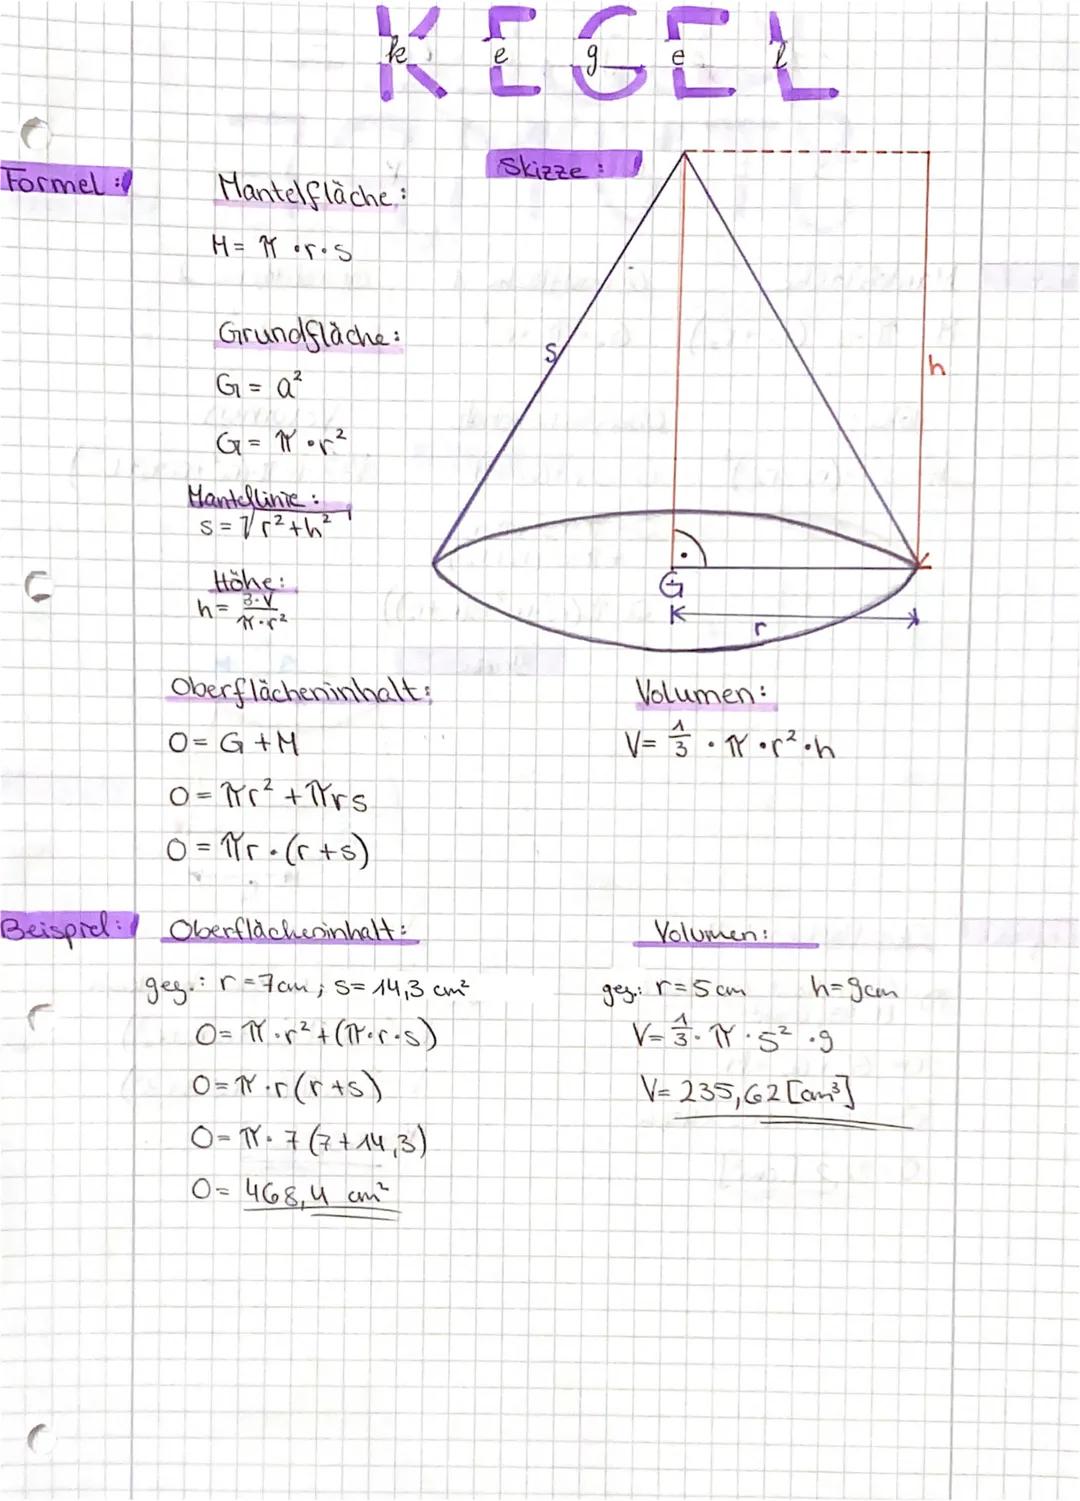 KEGEL
k e g e l
Formel:
Skizze:
Mantelfläche:
M = π · r · s
Grundfläche:
G = a²
G = π · r²
Mantellinie:
s = √r² + h²
Höhe:
h = 3·V / π·r²
s
h
G
r
Oberflächeninhalt:
O = G + M
O = πr² + πrs
O = πr · (r + s)
Volumen:
V = 1/3 · π · r² · h
Beispiel:
Oberflächeninhalt:
geg.: r = 7cm ; s = 14,3 cm²
O = π · r² + (π · r · s)
O = π · r (r + s)
O = π · 7 (7 + 14,3)
O = 468,4 cm²
Volumen:
geg.: r = 5 cm h = 9cm
V = 1/3 · π · 5² · 9
V = 235,62 [cm³]